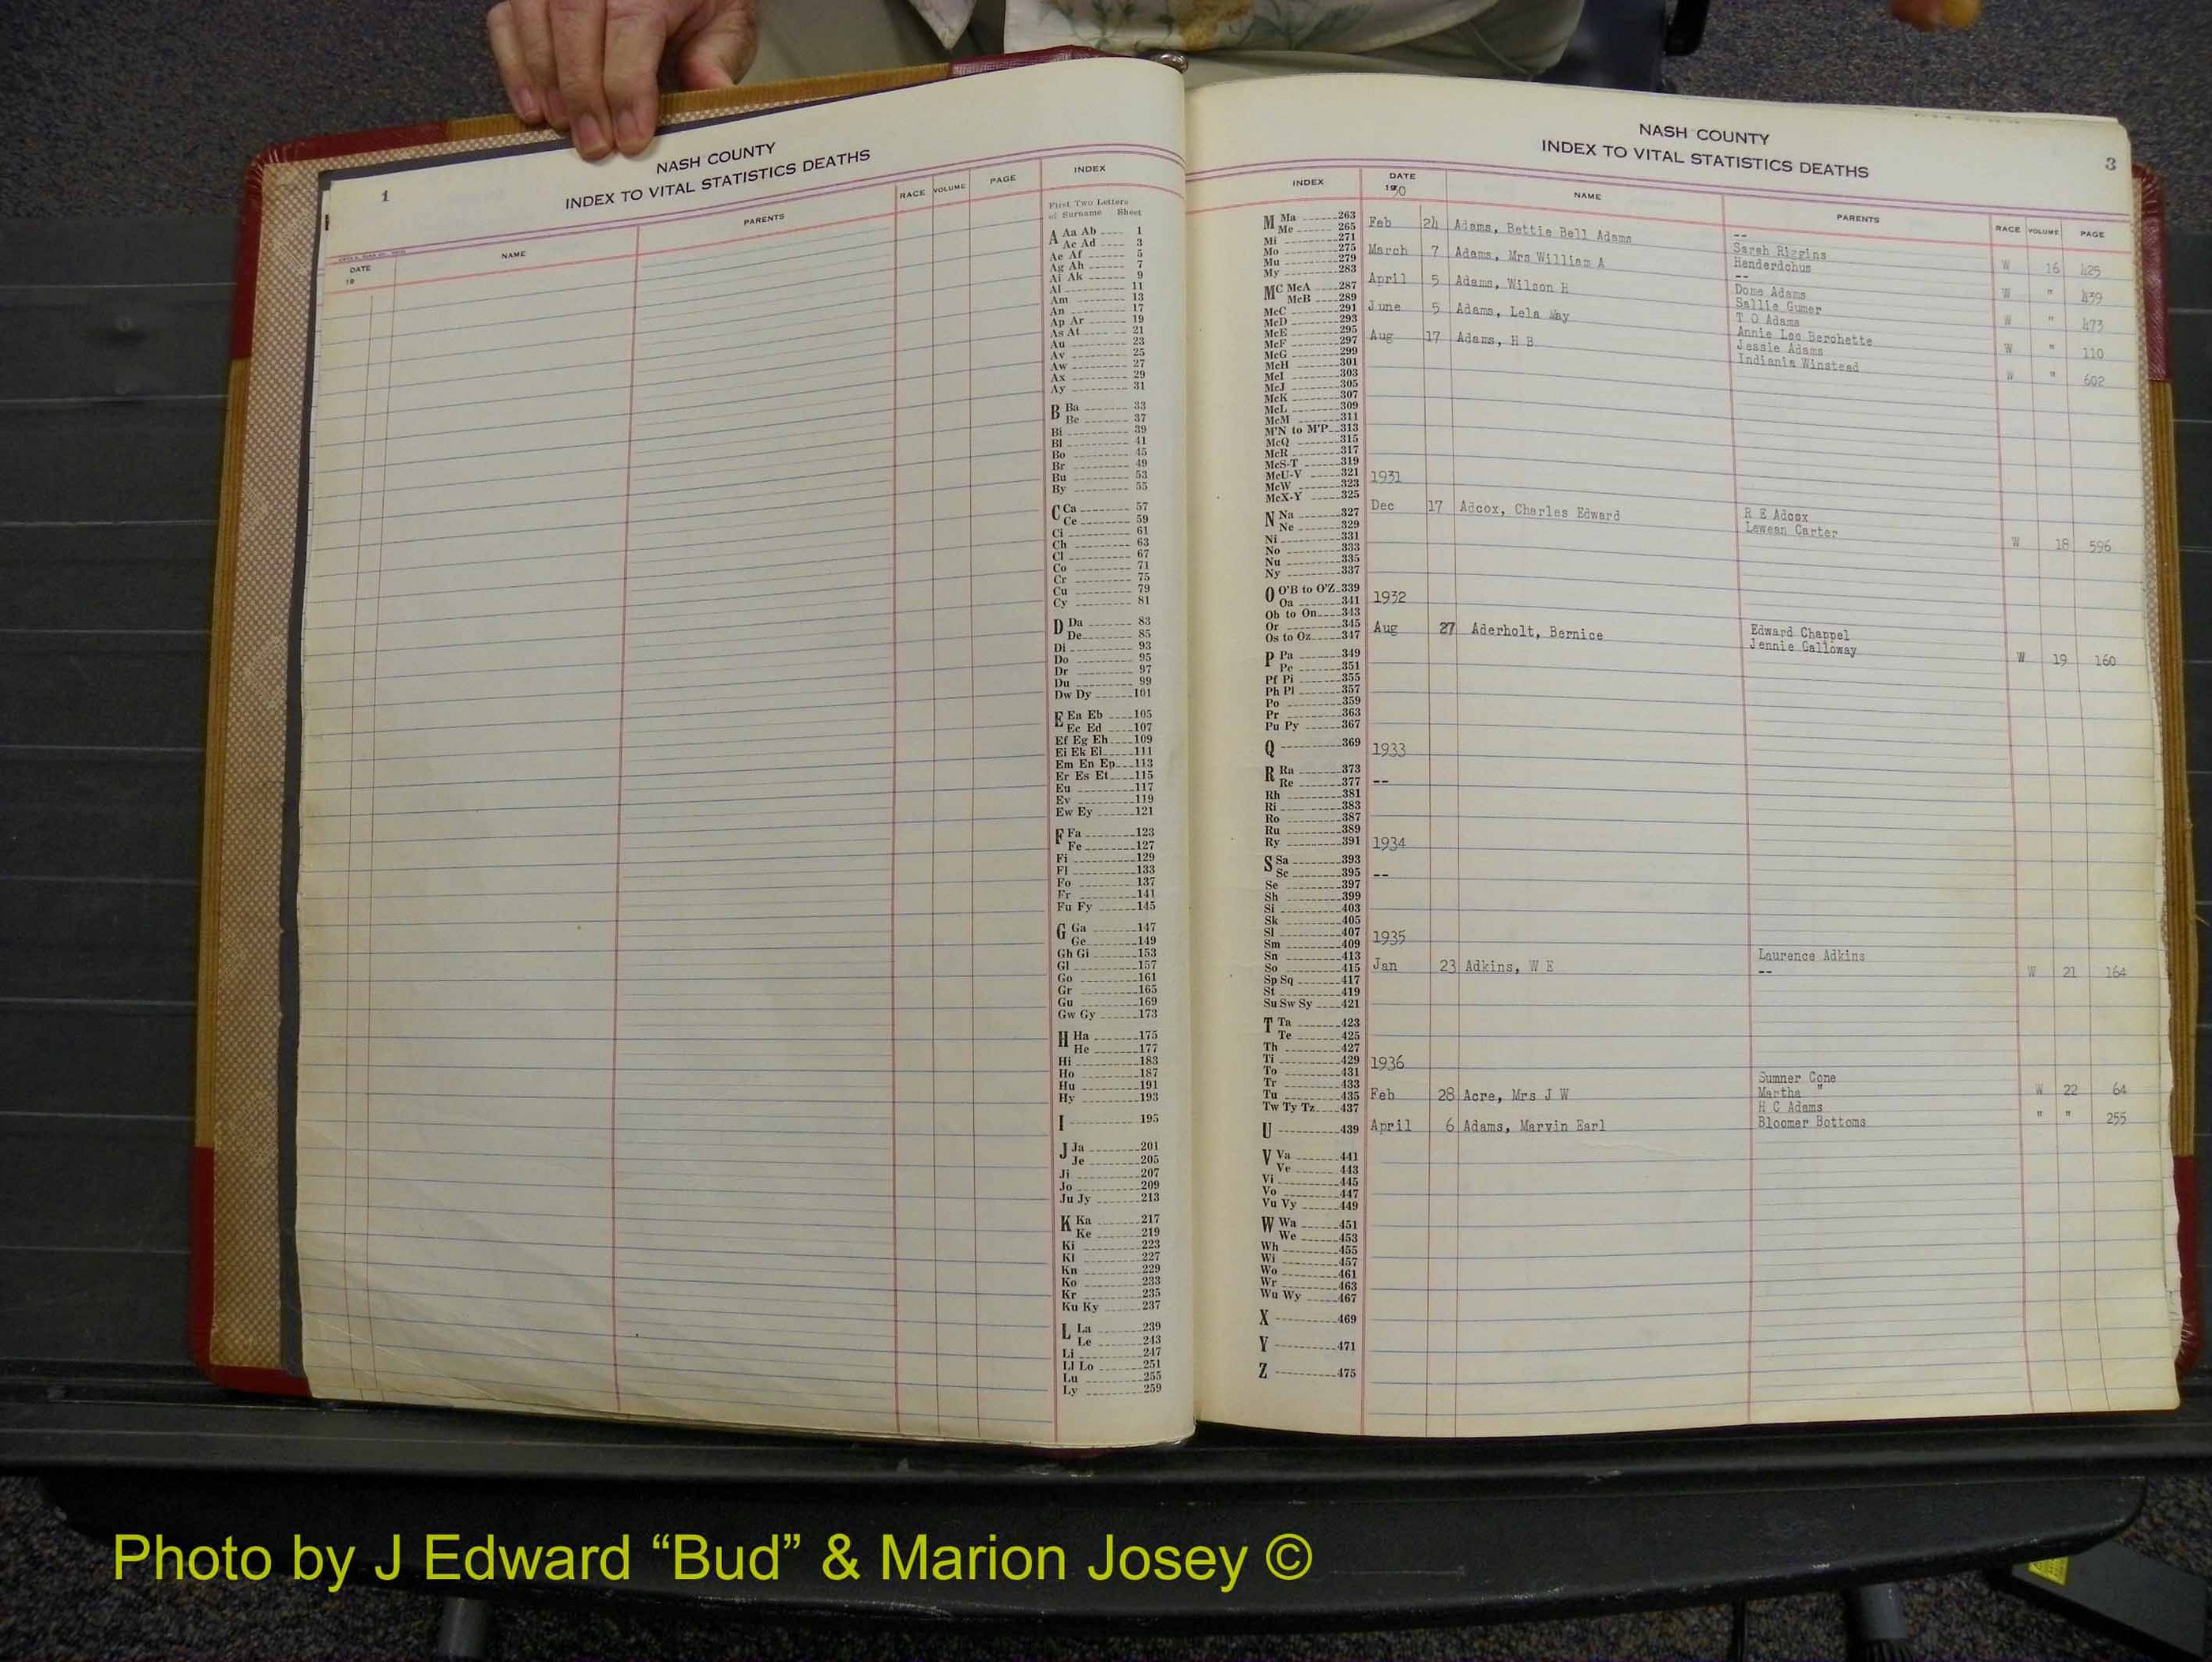 1
NASH COUNTY
INDEX TO VITAL STATISTICS DEATHS
DATE
19
NAME
PARENTS
RACE
VOLUME
PAGE
INDEX
First Two Letters
of Surname Sheet
A Aa Ab ---- 1
Ac Ad ---- 3
Ae Af ------ 5
Ag Ah ------ 7
Ai Ak ------ 9
Al --------- 11
Am --------- 13
An --------- 17
Ap Ar ------ 19
As At ------ 21
Au --------- 23
Av --------- 25
Aw --------- 27
Ax --------- 29
Ay --------- 31
B Ba ------- 33
Be ------- 37
Bi --------- 39
Bl --------- 41
Bo --------- 45
Br --------- 49
Bu --------- 53
By --------- 55
C Ca ------- 57
Ce ------- 59
Ci --------- 61
Ch --------- 63
Cl --------- 67
Co --------- 71
Cr --------- 75
Cu --------- 79
Cy --------- 81
D Da ------- 83
De ------- 85
Di --------- 93
Do --------- 95
Dr --------- 97
Du --------- 99
Dw Dy ------ 101
E Ea Eb ---- 105
Ec Ed ---- 107
Ef Eg Eh --- 109
Ei Ek El --- 111
Em En Ep --- 113
Er Es Et --- 115
Eu --------- 117
Ev --------- 119
Ew Ey ------ 121
F Fa ------- 123
Fe ------- 127
Fi --------- 129
Fl --------- 133
Fo --------- 137
Fr --------- 141
Fu Fy ------ 145
G Ga ------- 147
Ge ------- 149
Gh Gi ------ 153
Gl --------- 157
Go --------- 161
Gr --------- 165
Gu --------- 169
Gw Gy ------ 173
H Ha ------- 175
He ------- 177
Hi --------- 183
Ho --------- 187
Hu --------- 191
Hy --------- 193
I ---------- 195
J Ja ------- 201
Je ------- 205
Ji --------- 207
Jo --------- 209
Ju Jy ------ 213
K Ka ------- 217
Ke ------- 219
Ki --------- 223
Kl --------- 227
Kn --------- 229
Ko --------- 233
Kr --------- 235
Ku Ky ------ 237
L La ------- 239
Le ------- 243
Li --------- 247
Ll Lo ------ 251
Lu --------- 255
Ly --------- 259
NASH COUNTY
INDEX TO VITAL STATISTICS DEATHS
3
INDEX
M Ma ------- 263
Me ------- 265
Mi --------- 271
Mo --------- 275
Mu --------- 279
My --------- 283
MC McA ----- 287
McB ----- 289
McC -------- 291
McD -------- 293
McE -------- 295
McF -------- 297
McG -------- 299
McH -------- 301
McI -------- 303
McJ -------- 305
McK -------- 307
McL -------- 309
McM -------- 311
M'N to M'P -- 313
McQ -------- 315
McR -------- 317
McS-T ------ 319
McU-V ------ 321
McW -------- 323
McX-Y ------ 325
N Na ------- 327
Ne ------- 329
Ni --------- 331
No --------- 333
Nu --------- 335
Ny --------- 337
O O'B to O'Z - 339
Oa ------- 341
Ob to On --- 343
Or --------- 345
Os to Oz --- 347
P Pa ------- 349
Pe ------- 351
Pf Pi ------ 355
Ph Pl ------ 357
Po --------- 359
Pr --------- 363
Pu Py ------ 367
Q ---------- 369
R Ra ------- 373
Re ------- 377
Rh --------- 381
Ri --------- 383
Ro --------- 387
Ru --------- 389
Ry --------- 391
S Sa ------- 393
Sc ------- 395
Se --------- 397
Sh --------- 399
Si --------- 403
Sk --------- 405
Sl --------- 407
Sm --------- 409
Sn --------- 413
So --------- 415
Sp Sq ------ 417
St --------- 419
Su Sw Sy --- 421
T Ta ------- 423
Te ------- 425
Th --------- 427
Ti --------- 429
To --------- 431
Tr --------- 433
Tu --------- 435
Tw Ty Tz --- 437
U ---------- 439
V Va ------- 441
Ve ------- 443
Vi --------- 445
Vo --------- 447
Vu Vy ------ 449
W Wa ------- 451
We ------- 453
Wh --------- 455
Wi --------- 457
Wo --------- 461
Wr --------- 463
Wu Wy ------ 467
X ---------- 469
Y ---------- 471
Z ---------- 475
DATE
1930
NAME
PARENTS
RACE
VOLUME
PAGE
Feb 24 Adams, Bettie Bell Adams
--
Sarah Riggins W 16 425
March 7 Adams, Mrs William A
Henderdohus
-- W " 439
April 5 Adams, Wilson H
Dome Adams
Sallie Gumer W " 473
June 5 Adams, Lela May
T O Adams
Annie Lee Berchette W " 110
Aug 17 Adams, H B
Jessie Adams
Indiania Winstead W " 602
1931
Dec 17 Adcox, Charles Edward
R E Adcox
Lewean Carter W 18 596
1932
Aug 27 Aderholt, Bernice
Edward Chappel
Jennie Galloway W 19 160
1933
--
1934
--
1935
Laurence Adkins
Jan 23 Adkins, W E -- W 21 164
1936
Sumner Cone
Feb 28 Acre, Mrs J W Martha " W 22 64
H C Adams
April 6 Adams, Marvin Earl Bloomer Bottoms " " 255
Photo by J Edward “Bud” & Marion Josey ©